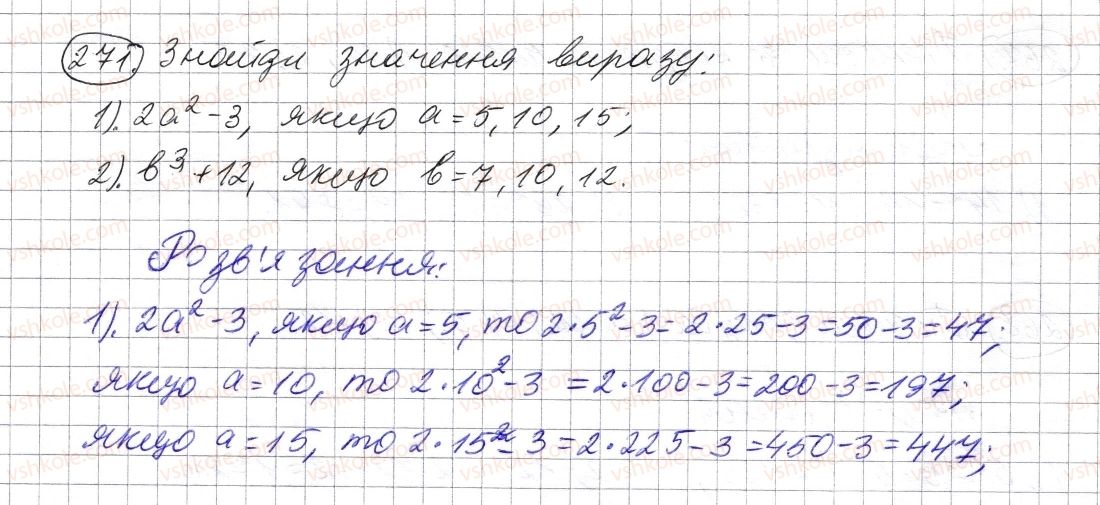 271. Знайди значення виразу:
1). 2a² - 3, якщо a = 5, 10, 15;
2). b³ + 12, якщо b = 7, 10, 12.
Розв'язання:
1). 2a² - 3, якщо a = 5, то 2·5² - 3 = 2·25 - 3 = 50 - 3 = 47;
якщо a = 10, то 2·10² - 3 = 2·100 - 3 = 200 - 3 = 197;
якщо a = 15, то 2·15² - 3 = 2·225 - 3 = 450 - 3 = 447;
vshkole.com